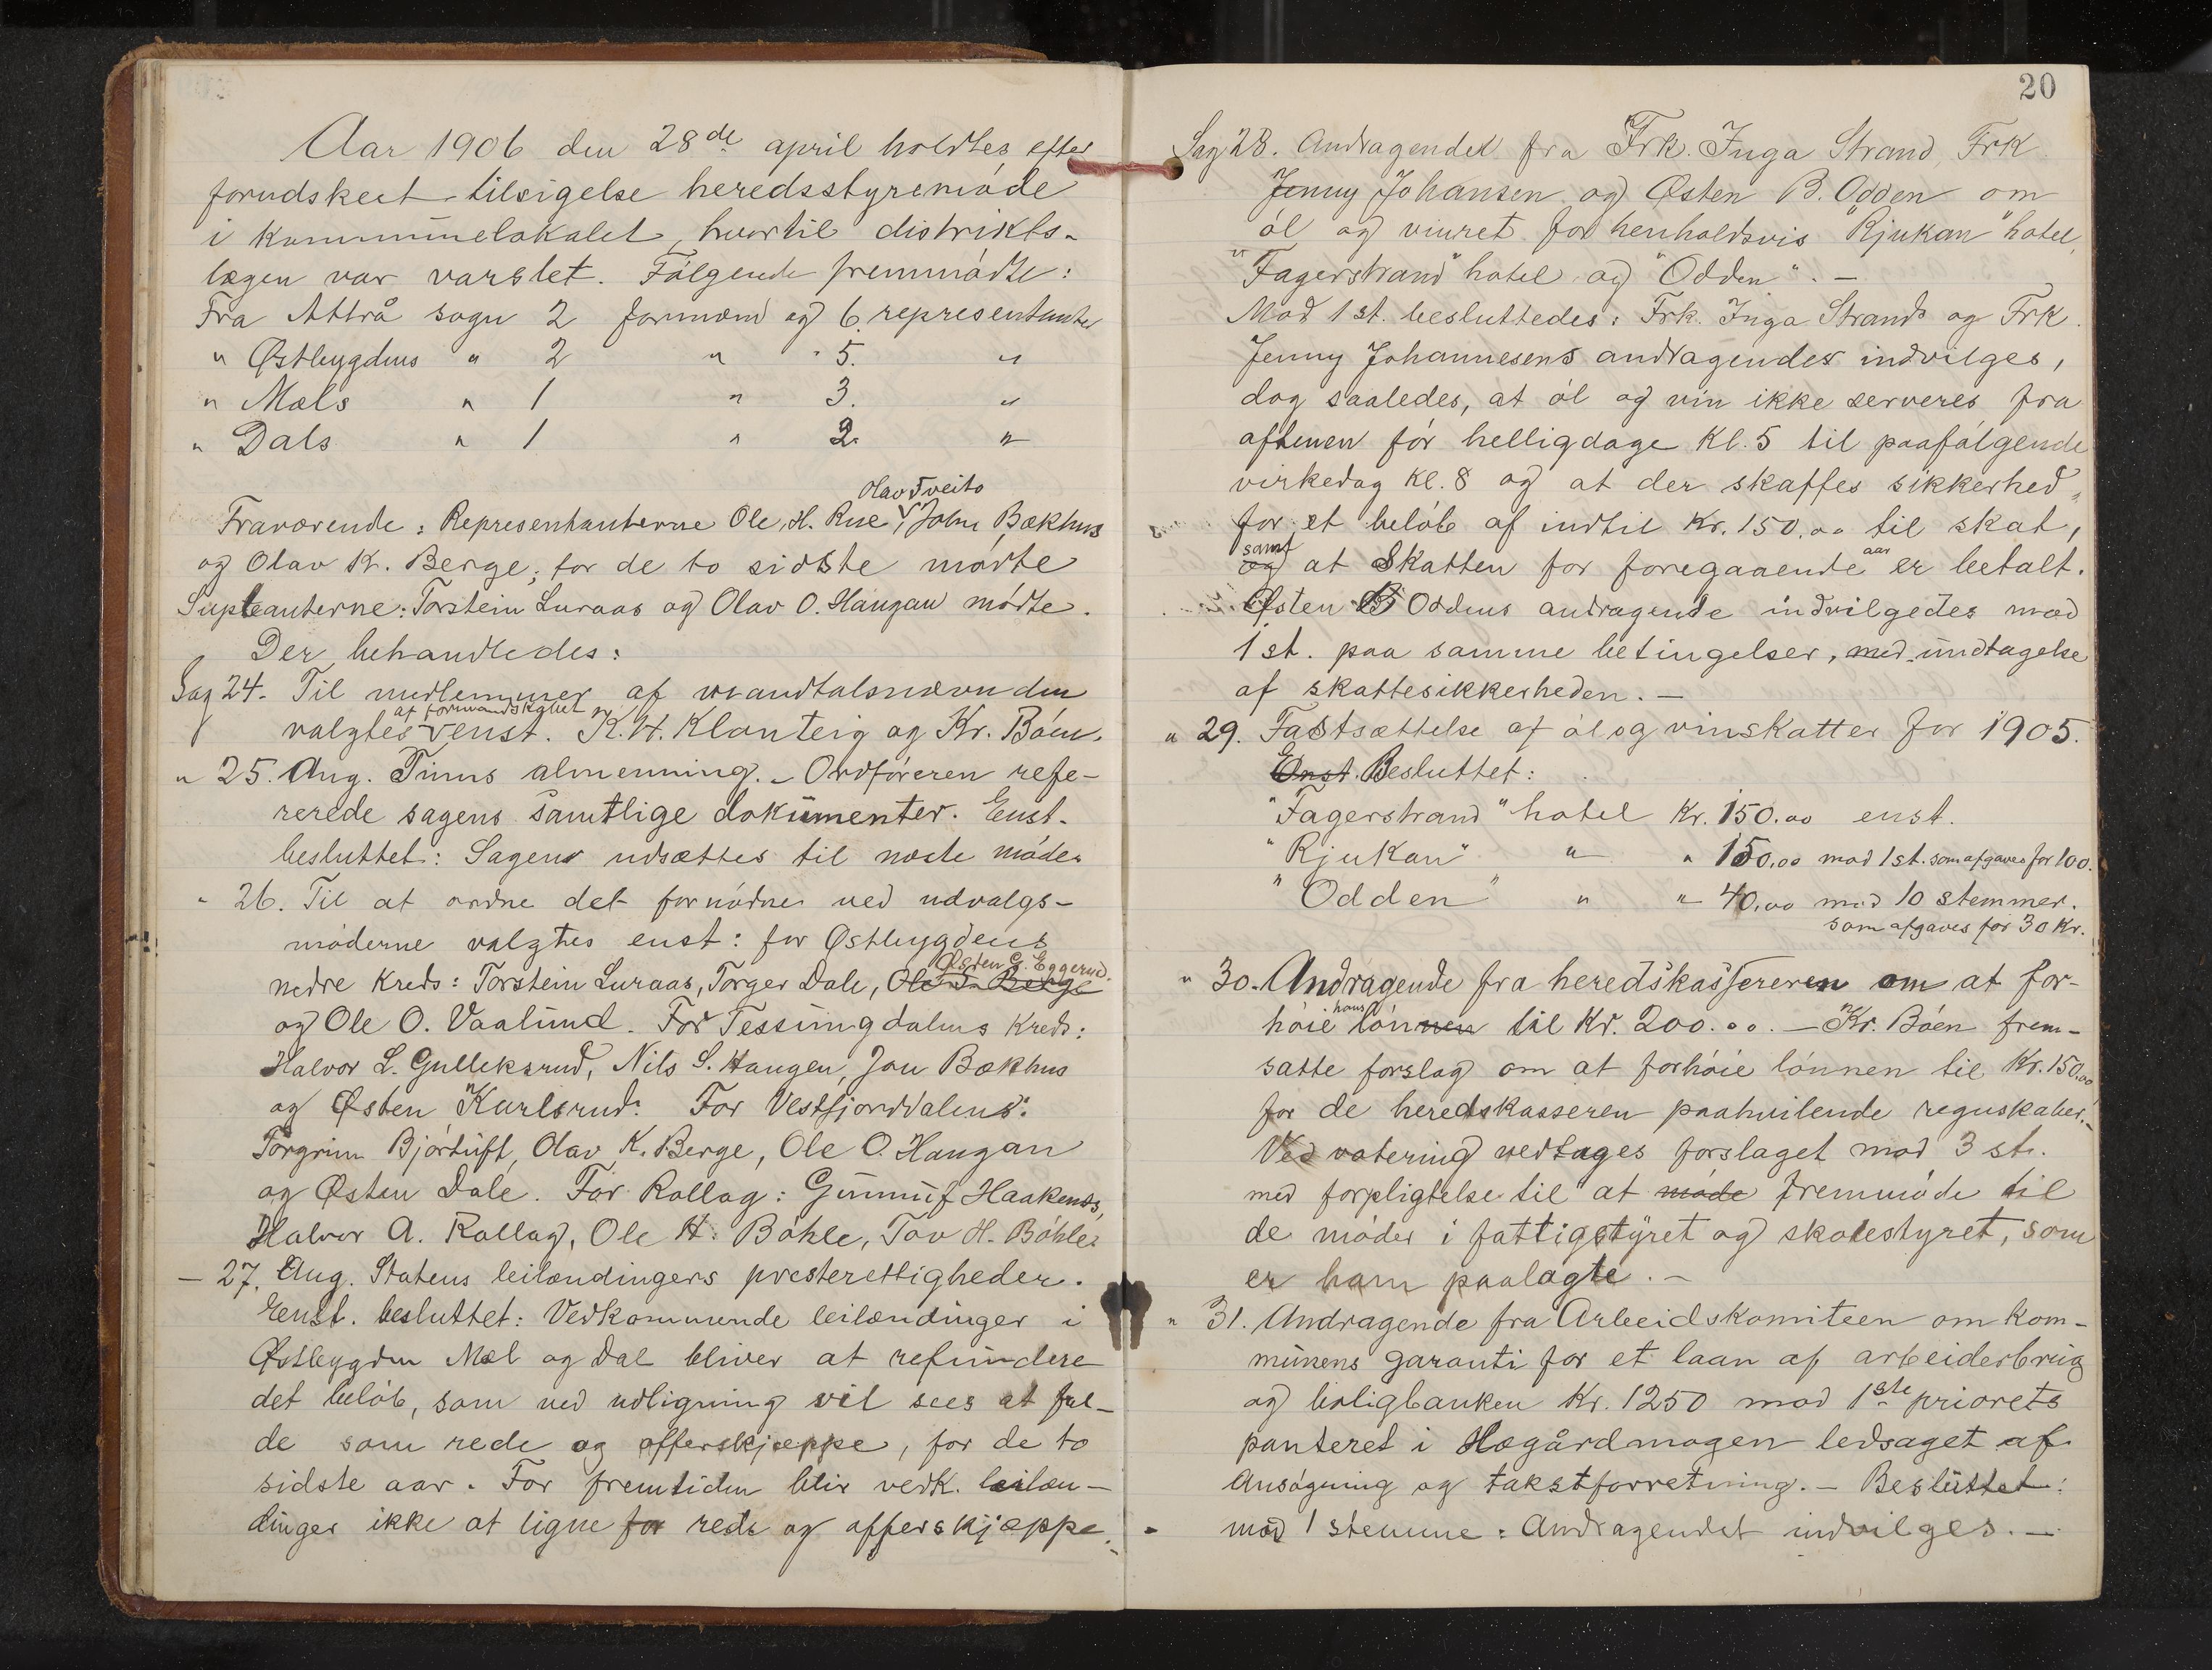 Aar 1906 den 28de april holdtes efter
forudskeet tilsigelse heredsstyremøde
i kommunelokalet, hvortil distrikts-
lægen var varslet. Følgende fremmødte:
Fra Attrå sogn 2 formænd og 6 representanter
" Østbygdens " 2 " " 5. "
" Mæls " 1 " 3. "
" Dals " 1 " 2. "
Olav Tveito
Fraværende: Representanterne Ole H. Rue, John Bækhus
og Olav K. Berge; for de to sidste mødte
Supleanterne: Torstein Luraas og Olav O. Haugan mødte.
Der behandledes:
Sag 24. Til medlemmer af mandtalsnævnden
af formandskabet
valgtes enst. K. H. Klonteig og Kr. Bøen.
" 25. Ang. Tinns almenning. - Ordføreren refe-
rerede sagens samtlige dokumenter. Enst.
besluttet: Sagen udsættes til næste møde.
" 26. Til at ordne det fornødne ved udvalgs-
møderne valgtes enst: for Østbygdens
Østen G. Eggerud
nedre Kreds: Torstein Luraas, Torger Dale, Ole T. Berge
og Ole O. Vaalund. For Tessungdalens Kreds:
Halvor L. Gulleksrud, Nils S. Haugen, Jon Bækhus
og Østen Karlsrud. For Vestfjorddalens:
Torgrim Bjørtuft, Olav K. Berge, Ole O. Haugan
og Østen Dale. For Rollag: Gunnuf Haakenss,
Halvor A. Rollag, Ole H. Bøhle, Tov H. Bøhle.
- 27. Ang. Statens leilændingers presterettigheder.
Enst. besluttet: Vedkommende leilændinger i
Østbygden Mæl og Dal bliver at refundere
det beløb, som ved udligning vil sees at fal-
de som rede og offerskjæppe, for de to
sidste aar. For fremtiden blir vedk. leilæn-
dinger ikke at ligne for rede og offerskjæppe.
20
Sag 28. Andragendet fra Frk. Inga Strand, Frk
Jenny Johansen og Østen B. Odden om
øl og vinret for henholdsvis "Rjukan" hotel,
"Fagerstrand" hotel og "Odden". -
Mod 1 st. besluttedes: Frk. Inga Strands og Frk.
Jenny Johannesens andragender indvilges,
dog saaledes, at øl og vin ikke serveres fra
aftenen før helligdage Kl. 5 til paafølgende
virkedag Kl. 8 og at der skaffes sikkerhed
for et beløb af indtil Kr. 150.00 til skat,
samt aar
og at Skatten for foregaaende er betalt.
Østen B Oddens andragende indvilgedes mod
1 st. paa samme betingelser, med undtagelse
af skattesikkerheden. -
" 29. Fastsættelse af øl og vinskatter for 1905.
Enst. Besluttet:
"Fagerstrand" hotel Kr. 150.00 enst.
"Rjukan" " " 150.00 mod 1 st. som afgaves for 100.
"Odden" " " 40.00 mod 10 stemmer.
som afgaves for 30 Kr.
" 30. Andragende fra heredskassereren om at for-
hans
høie lønnen til Kr. 200.00. - Kr. Bøen frem-
satte forslag om at forhøie lønnen til Kr. 150.00
for de heredskasseren paahvilende regnskaber. -
Ved votering vedtages forslaget mod 3 st.
med forpligtelse til at møde fremmøde til
de møder i fattigstyret og skolestyret, som
er ham paalagte. -
" 31. Andragende fra Arbeidskomiteen om kom-
munens garanti for et laan af arbeiderbrug
og boligbanken Kr. 1250 mod 1ste priorets
panteret i Hægårdmogen ledsaget af
Ansøgning og takstforretning. - Besluttet:
mod 1 stemme: Andragendet indvilges. -